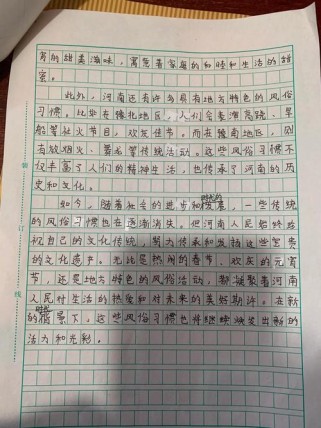 宵的甜美滋味，寓意着家庭的和睦和生活的甜
蜜。
此外，河南还有许多具有地方特色的风俗
习惯。比如在豫北地区，人们会表演高跷、旱
船等社火节目，欢庆佳节。而在豫南地区，则
有放烟火、舞龙等传统活动。这些风俗习惯不
仅丰富了人们的精神生活，也传承了河南的历
史和文化。
如今，随着社会的进步和发展，一些传统
的风俗习惯也在逐渐消失。但河南人民始终珍
视自己的文化传统，努力传承和发扬这些宝贵
的文化遗产。无论是热闹的春节、欢庆的元宵
节，还是地方特色的风俗活动，都凝聚着河南
人民对生活的热爱和对未来的美好期许。在新
的背景下，这些风俗习惯也将继续焕发出新的
活力和光彩。
装
订
线